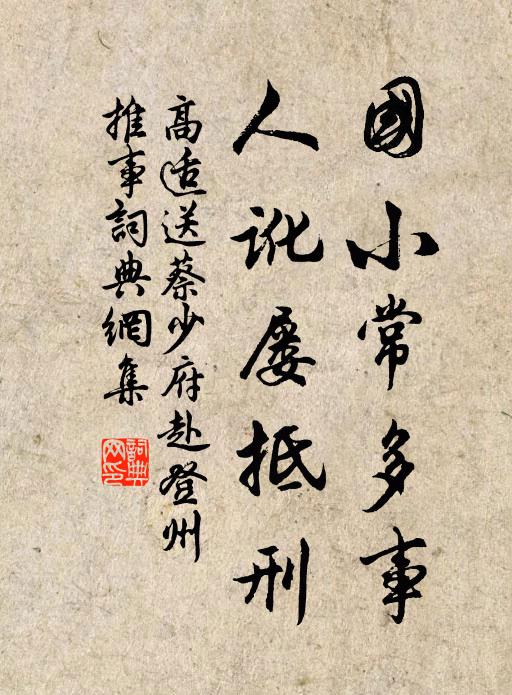 國小常多事
人訛屡抵刑
高适送蔡少府赴登州
推事詞典網集
詞典
网印